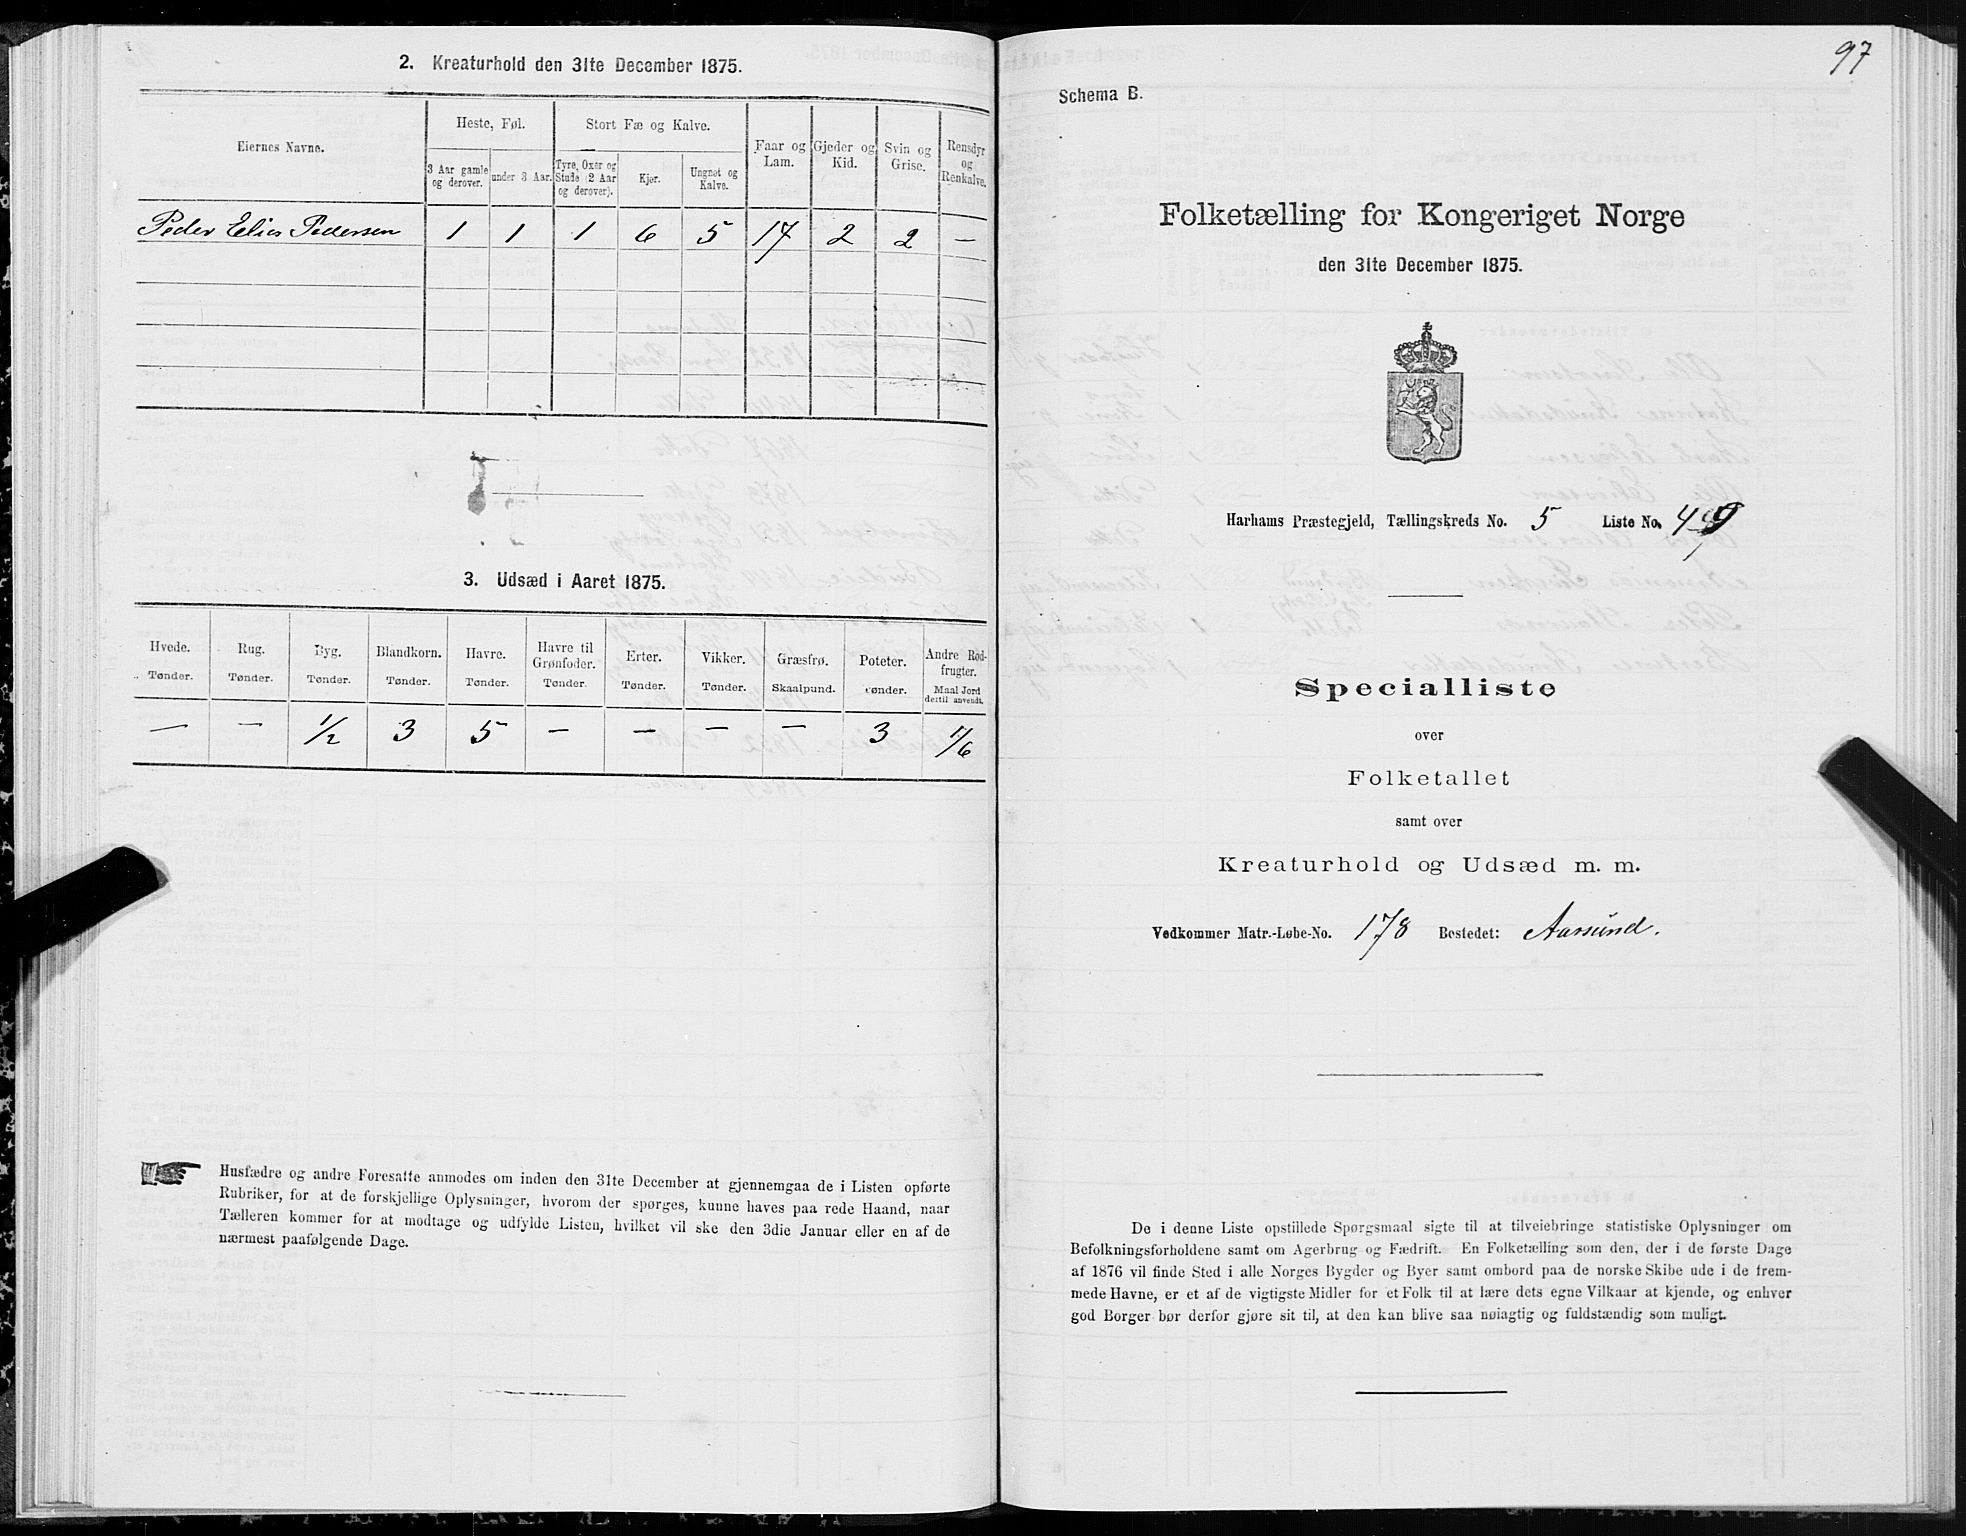 2. Kreaturhold den 31te December 1875.
Eiernes Navne.
Heste, Føl.
Stort Fæ og Kalve.
Faar og Lam.
Gjeder og Kid.
Svin og Grise.
Rensdyr og Renkalve.
3 Aar gamle og derover.
under 3 Aar.
Tyre, Oxer og Stude (2 Aar og derover).
Kjør.
Ungnøt og Kalve.
Peder Elias Pedersen 1 1 1 6 5 17 2 2 —
3. Udsæd i Aaret 1875.
Hvede. Rug. Byg. Blandkorn. Havre. Havre til Grønfoder. Erter. Vikker. Græsfrø. Poteter. Andre Rodfrugter.
Tønder. Tønder. Tønder. Tønder. Tønder. Tønder. Tønder. Tønder. Skaalpund. Tønder. Maal Jord dertil anvendt.
— — 1/2 3 5 — — — — 3 1/6
Husfædre og andre Foresatte anmodes om inden den 31te December at gjennemgaa de i Listen opførte
Rubriker, for at de forskjellige Oplysninger, hvorom der spørges, kunne haves paa rede Haand, naar
Tælleren kommer for at modtage og udfylde Listen, hvilket vil ske den 3die Januar eller en af de
nærmest paafølgende Dage.
97
Schema B.
Folketælling for Kongeriget Norge
den 31te December 1875.
Harhams Præstegjeld, Tællingskreds No. 5 Liste No. 49
Specialliste
over
Folketallet
samt over
Kreaturhold og Udsæd m. m.
Vedkommer Matr.-Løbe-No. 178 Bostedet: Aarsund.
De i denne Liste opstillede Spørgsmaal sigte til at tilveiebringe statistiske Oplysninger om
Befolkningsforholdene samt om Agerbrug og Fædrift. En Folketælling som den, der i de første Dage
af 1876 vil finde Sted i alle Norges Bygder og Byer samt ombord paa de norske Skibe ude i de frem-
mede Havne, er et af de vigtigste Midler for et Folk til at lære dets egne Vilkaar at kjende, og enhver
god Borger bør derfor gjøre sit til, at den kan blive saa nøiagtig og fuldstændig som muligt.